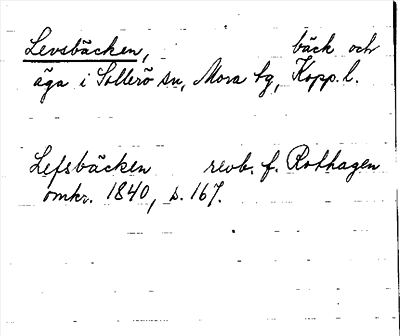 Levsbäcken, bäck och
äga i Sollerö sn, Mora tg, Kopp. l.
Lefsbäcken revb. f. Rothagen
omkr. 1840, s. 167.